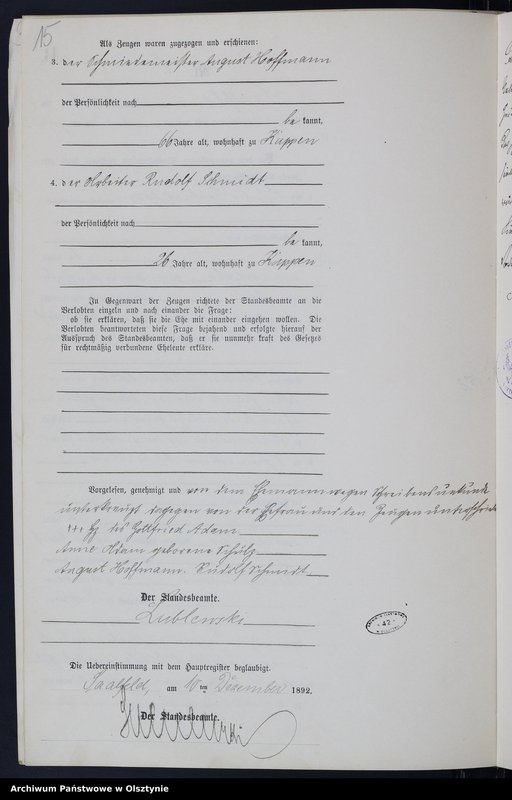 15
Als Zeugen waren zugezogen und erschienen:
3. der Schmiedemeister August Hoffmann
der Persönlichkeit nach
be kannt,
66 Jahre alt, wohnhaft zu Kuppen
4. der Arbeiter Rudolf Schmidt
der Persönlichkeit nach
be kannt,
26 Jahre alt, wohnhaft zu Kuppen
In Gegenwart der Zeugen richtete der Standesbeamte an die
Verlobten einzeln und nach einander die Frage:
ob sie erklären, daß sie die Ehe mit einander eingehen wollen. Die
Verlobten beantworteten diese Frage bejahend und erfolgte hierauf der
Ausspruch des Standesbeamten, daß er sie nunmehr kraft des Gesetzes
für rechtmäßig verbundene Eheleute erkläre.
Vorgelesen, genehmigt und von dem Ehemann wegen Schreibensunkunde
unterkreuzt dagegen von der Ehefrau und den Zeugen unterschrieben
+++ Hz des Gottfried Adam
Anne Adam geborene Schulz
August Hoffmann. Rudolf Schmidt
Der Standesbeamte.
Lublewski
Die Uebereinstimmung mit dem Hauptregister beglaubigt.
Saalfeld, am 10 ten Dezember 1892.
Der Standesbeamte.
42
Archiwum Państwowe w Olsztynie